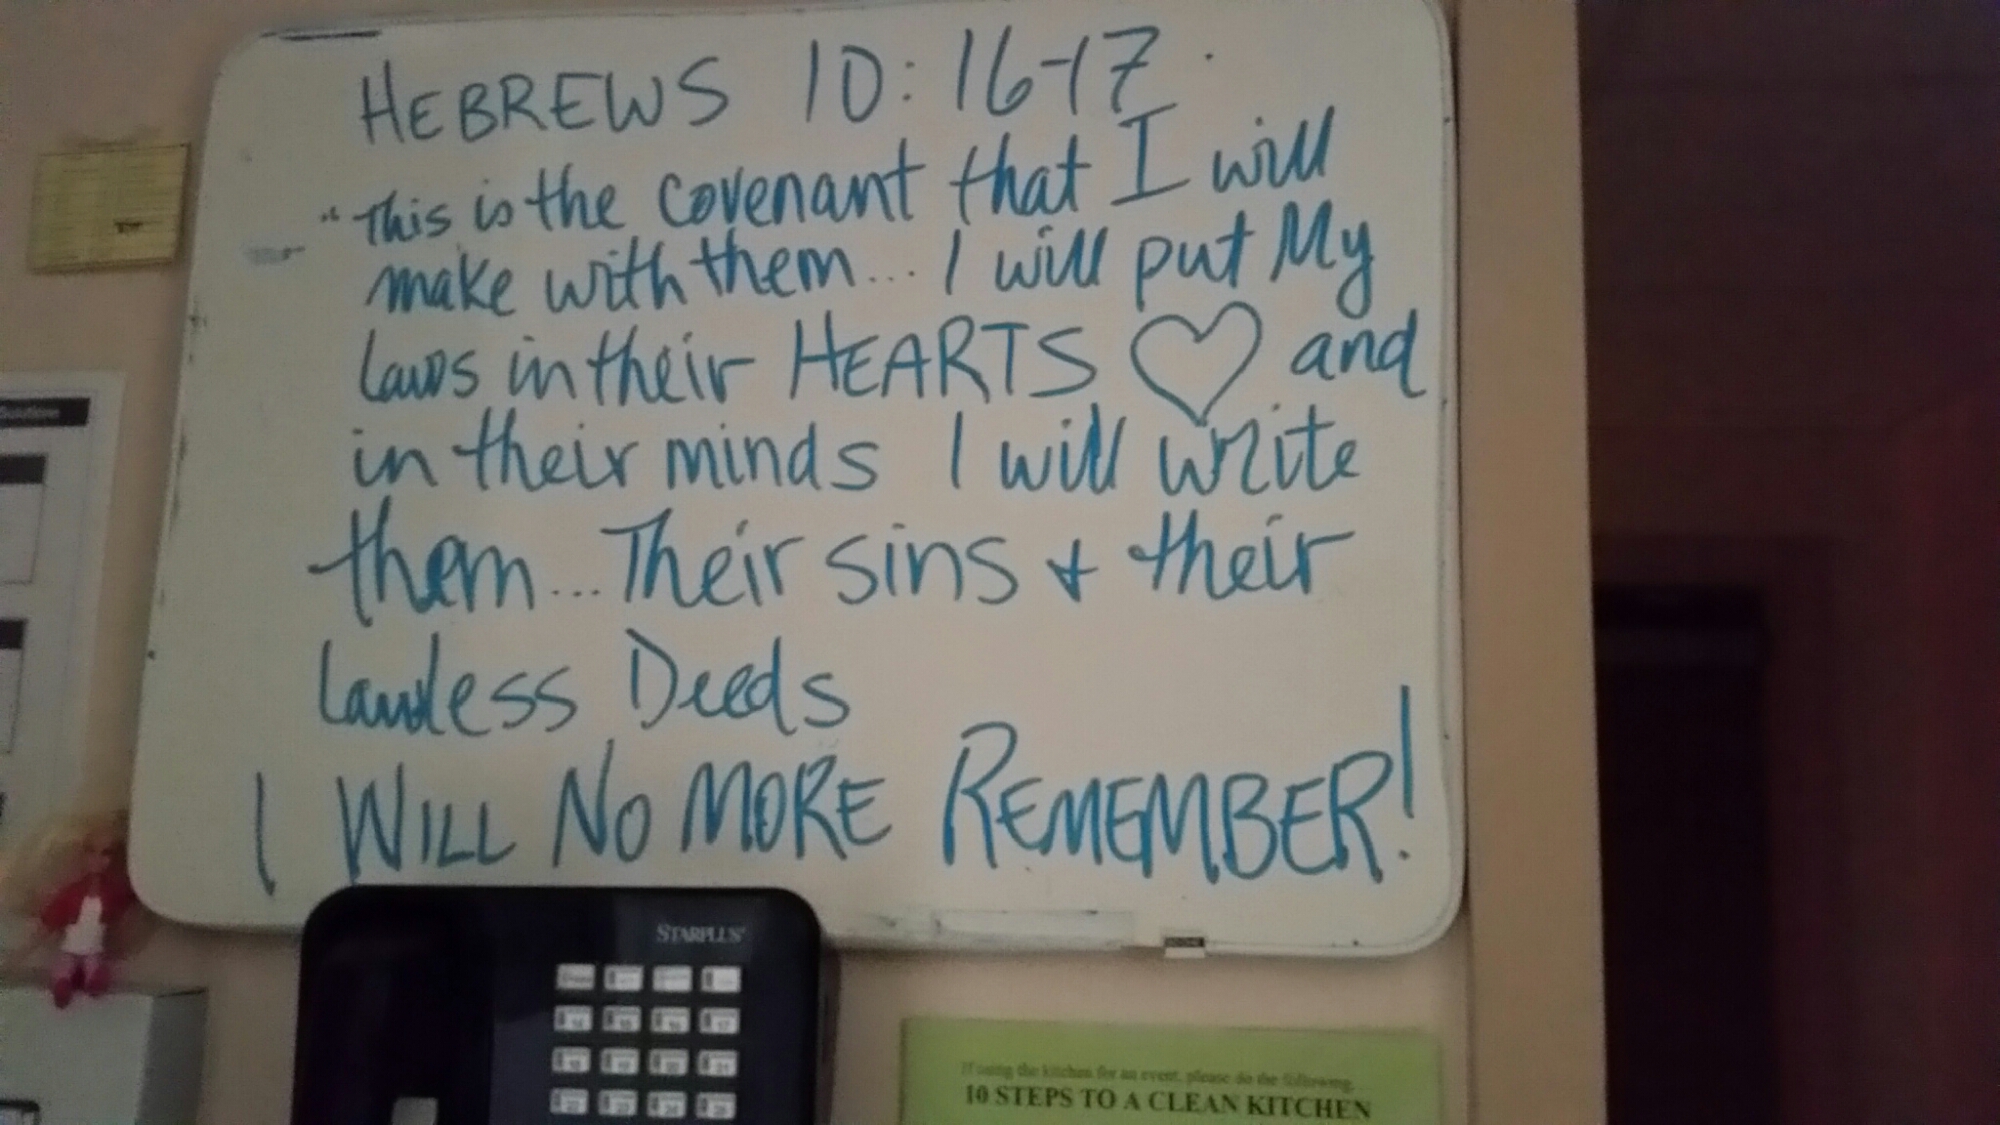 HEBREWS 10:16-17
"This is the covenant that I will
make with them... I will put My
laws in their HEARTS ♡ and
in their minds I will write
them... Their sins & their
Lawless Deeds
I WILL NO MORE REMEMBER!
STARPLUS
If using the kitchen for an event, please do the following
10 STEPS TO A CLEAN KITCHEN